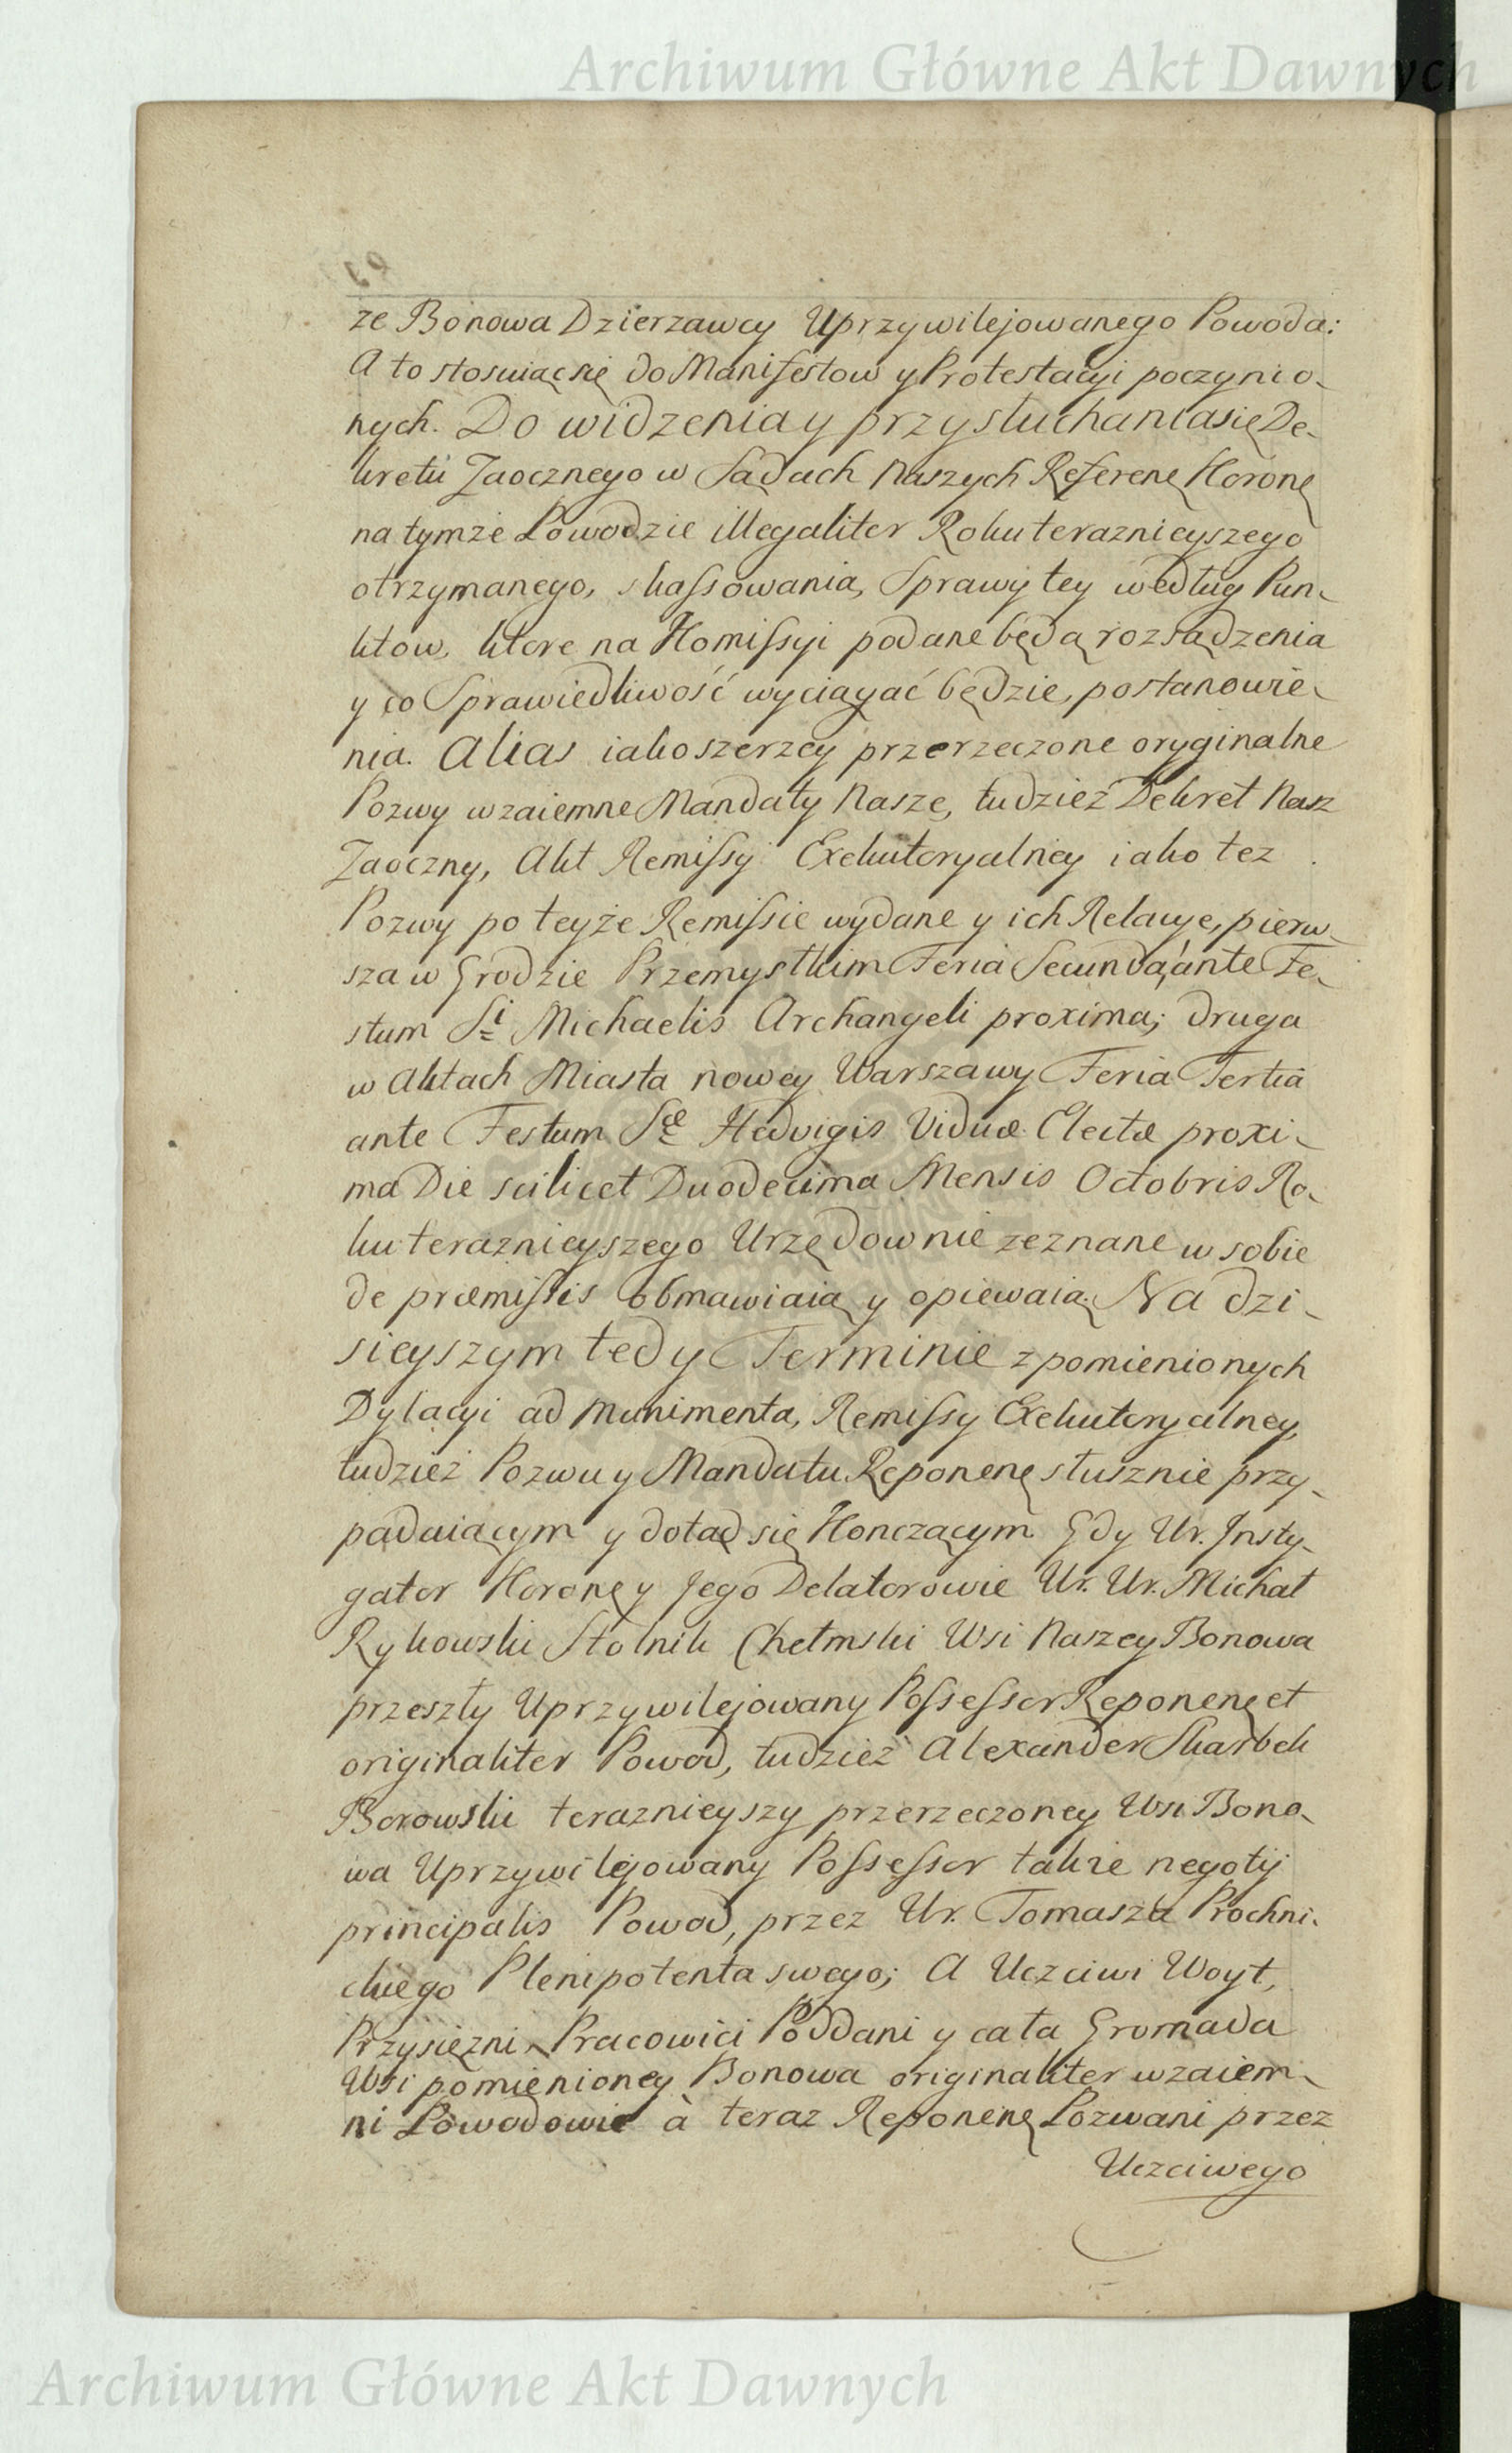 Archiwum Główne Akt Dawnych
ze Bonowa Dzierzawcy Uprzywilejowanego Powoda:
A to stosuiąc się do Manifestow y Protestacyi poczynio-
nych. Do widzenia y przysłuchania się De-
kretu Zaocznego w Sądach Naszych Referenę Koronę
na tymże Powodzie illegaliter Roku teraznieyszego
otrzymanego, skassowania, Sprawy tey według Pun-
któw, ktore na Kommissyi podane będą rozsądzenia
y co Sprawiedliwość wyciągać będzie, postanowie-
nia. Alias iako szerzey przerzeczone oryginalne
Pozwy wzaiemne Mandaty Nasze, tudzież Dekret Nasz
Zaoczny, Akt Remissy Exekutoryalney iako tez
Pozwy po teyże Remissie wydane y ich Relacye, pierw-
sza w Grodzie Przemyslkim Feria Secunda, ante Fe-
stum Si Michaelis Archangeli proxima; druga
w Aktach Miasta nowey Warszawy Feria Tertia
ante Festum Sæ Hedvigis Viduæ Electæ proxi-
ma Die scilicet Duodecima Mensis Octobris Ro-
ku teraznieyszego Urzędownie zeznane w sobie
de præmissis obmawiaią y opiewaią. Na dzi-
sieyszym tedy Terminie z pomienionych
Dylacyi ad Munimenta, Remissy Exekutoryalney,
tudzież Pozwu y Mandatu Reponenę słusznie przy-
padaiącym y dotąd się Kończącym Gdy Ur. Insty-
gator Koronę y Jego Delatorowie Ur. Ur. Michał
Rykowski Stolnik Chełmski Wsi Naszey Bonowa
przeszły Uprzywilejowany Possessor Reponenę et
originaliter Powod, tudzież Alexander Skarbek
Borowski teraznieyszy przerzeczoney Wsi Bono-
wa Uprzywilejowany Possessor także negotij
principalis Powod, przez Ur. Tomasza Prochni-
ckiego Plenipotenta swego; A Uczciwi Woyt,
Przysiężni, Pracowici Poddani y cała Gromada
Wsi pomienioney Bonowa originaliter wzaiem-
ni Powodowie à teraz Reponenę Pozwani przez
Uczciwego
Archiwum Główne Akt Dawnych